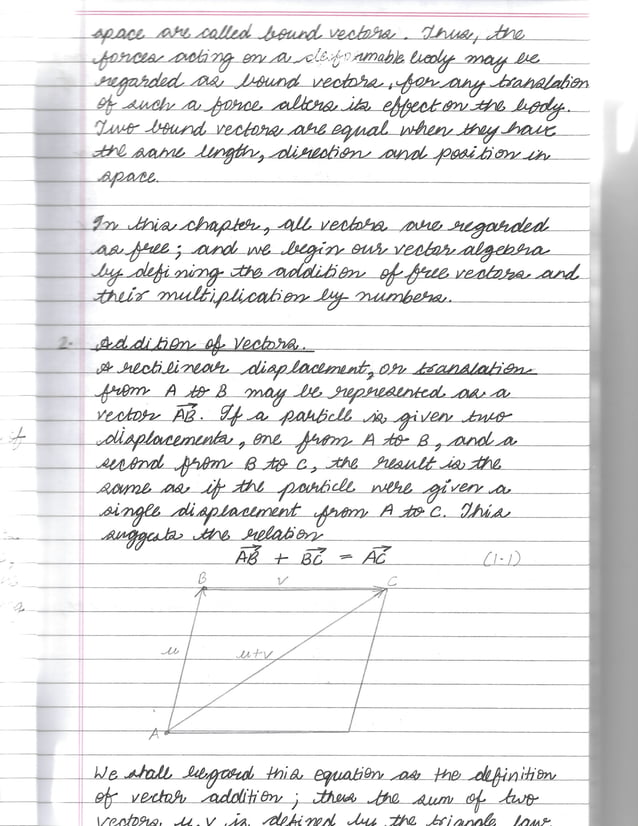 space are called bound vectors. Thus, the
forces acting on a deformable body may be
regarded as bound vectors, for any translation
of such a force alters its effect on the body.
Two bound vectors are equal when they have
the same length, direction and position in
space.
In this chapter, all vectors are regarded
as free; and we begin our vector algebra
by defining the addition of free vectors and
their multiplication by numbers.
2. Addition of vectors.
A rectilinear displacement, or translation
from A to B may be represented as a
vector A⃗B⃗. If a particle is given two
displacements, one from A to B, and a
second from B to C, the result is the
same as if the particle were given a
single displacement from A to C. This
suggests the relation
A⃗B⃗ + B⃗C⃗ = A⃗C⃗ (1.1)
B v C
u u+v
A
We shall regard this equation as the definition
of vector addition; then the sum of two
vectors u, v is defined by the triangle law